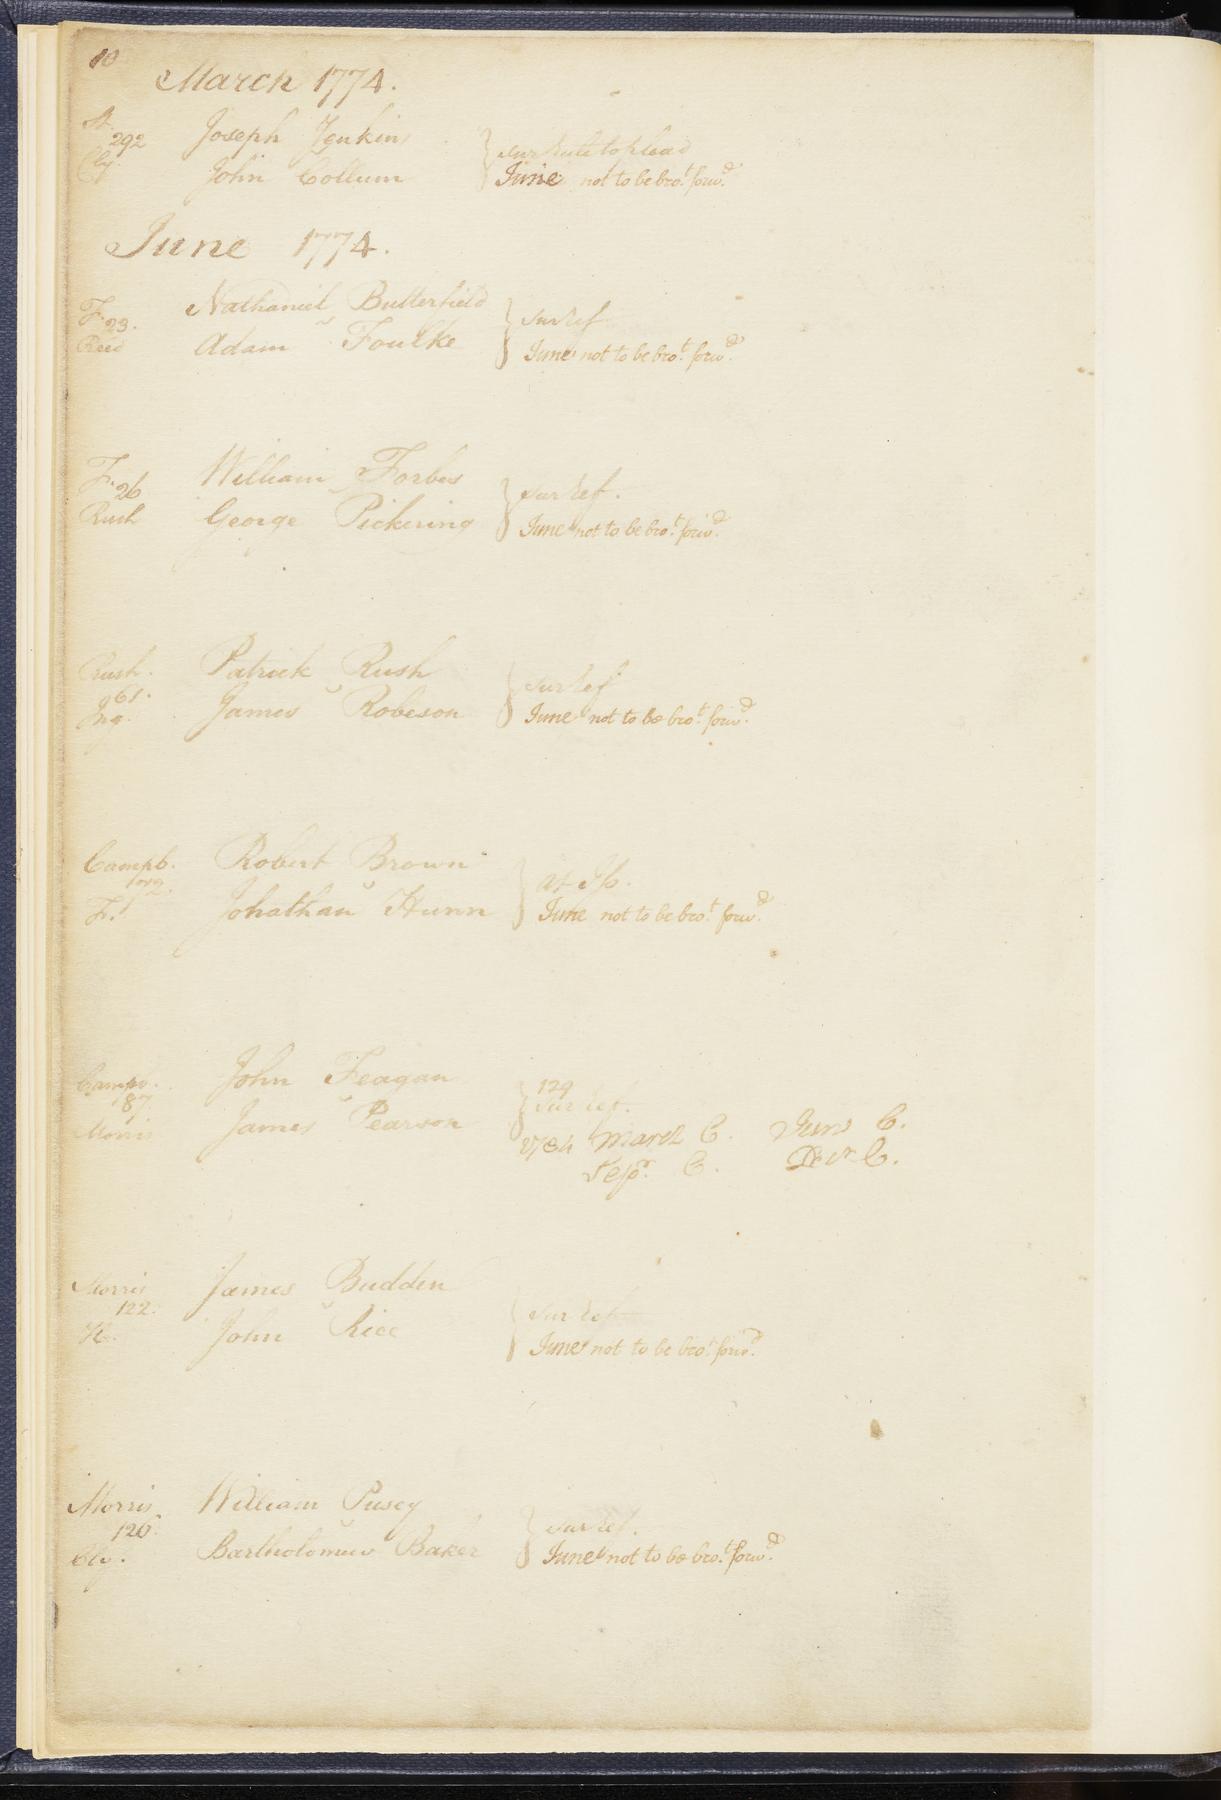 10
March 1774.
292 Joseph Jenkins
Cly. John Collum
Sur Rule to plead
June not to be bro.t forw.d
June 1774.
F. 23. Nathaniel Butterfield
Reed Adam Foulke
Sur Ref
June not to be bro.t forw.d
F. 26 William Forbes
Rush George Pickering
Sur Ref.
June not to be bro.t forw.d
Rush. Patrick Rush
61. Ing. James Robeson
Sur Ref
June not to be bro.t forw.d
Campb. Robert Brown
172. F. Johathan Hunn
at Iss.
June not to be bro.t forw.d
Campb. John Feagan
87 Morris James Pearson
129
Sur Ref.
1784 March C. June C.
Sepr. C. Decr C.
Morris James Budden
122. John Rice
Sur Ref
June not to be bro.t forw.d
Morris William Pusey
126. Cly. Bartholomew Baker
Sur Ref.
June not to be bro.t forw.d